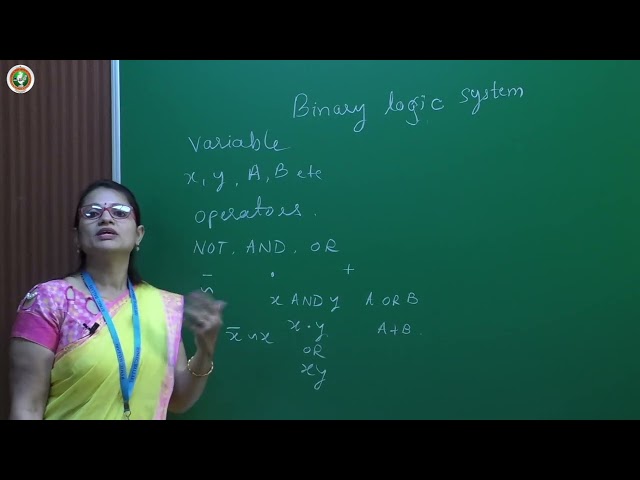 Binary logic system
variable
x, y, A, B etc
operators.
NOT, AND, OR
- · +
x AND y A OR B
x̄ x · y A+B.
OR
xy